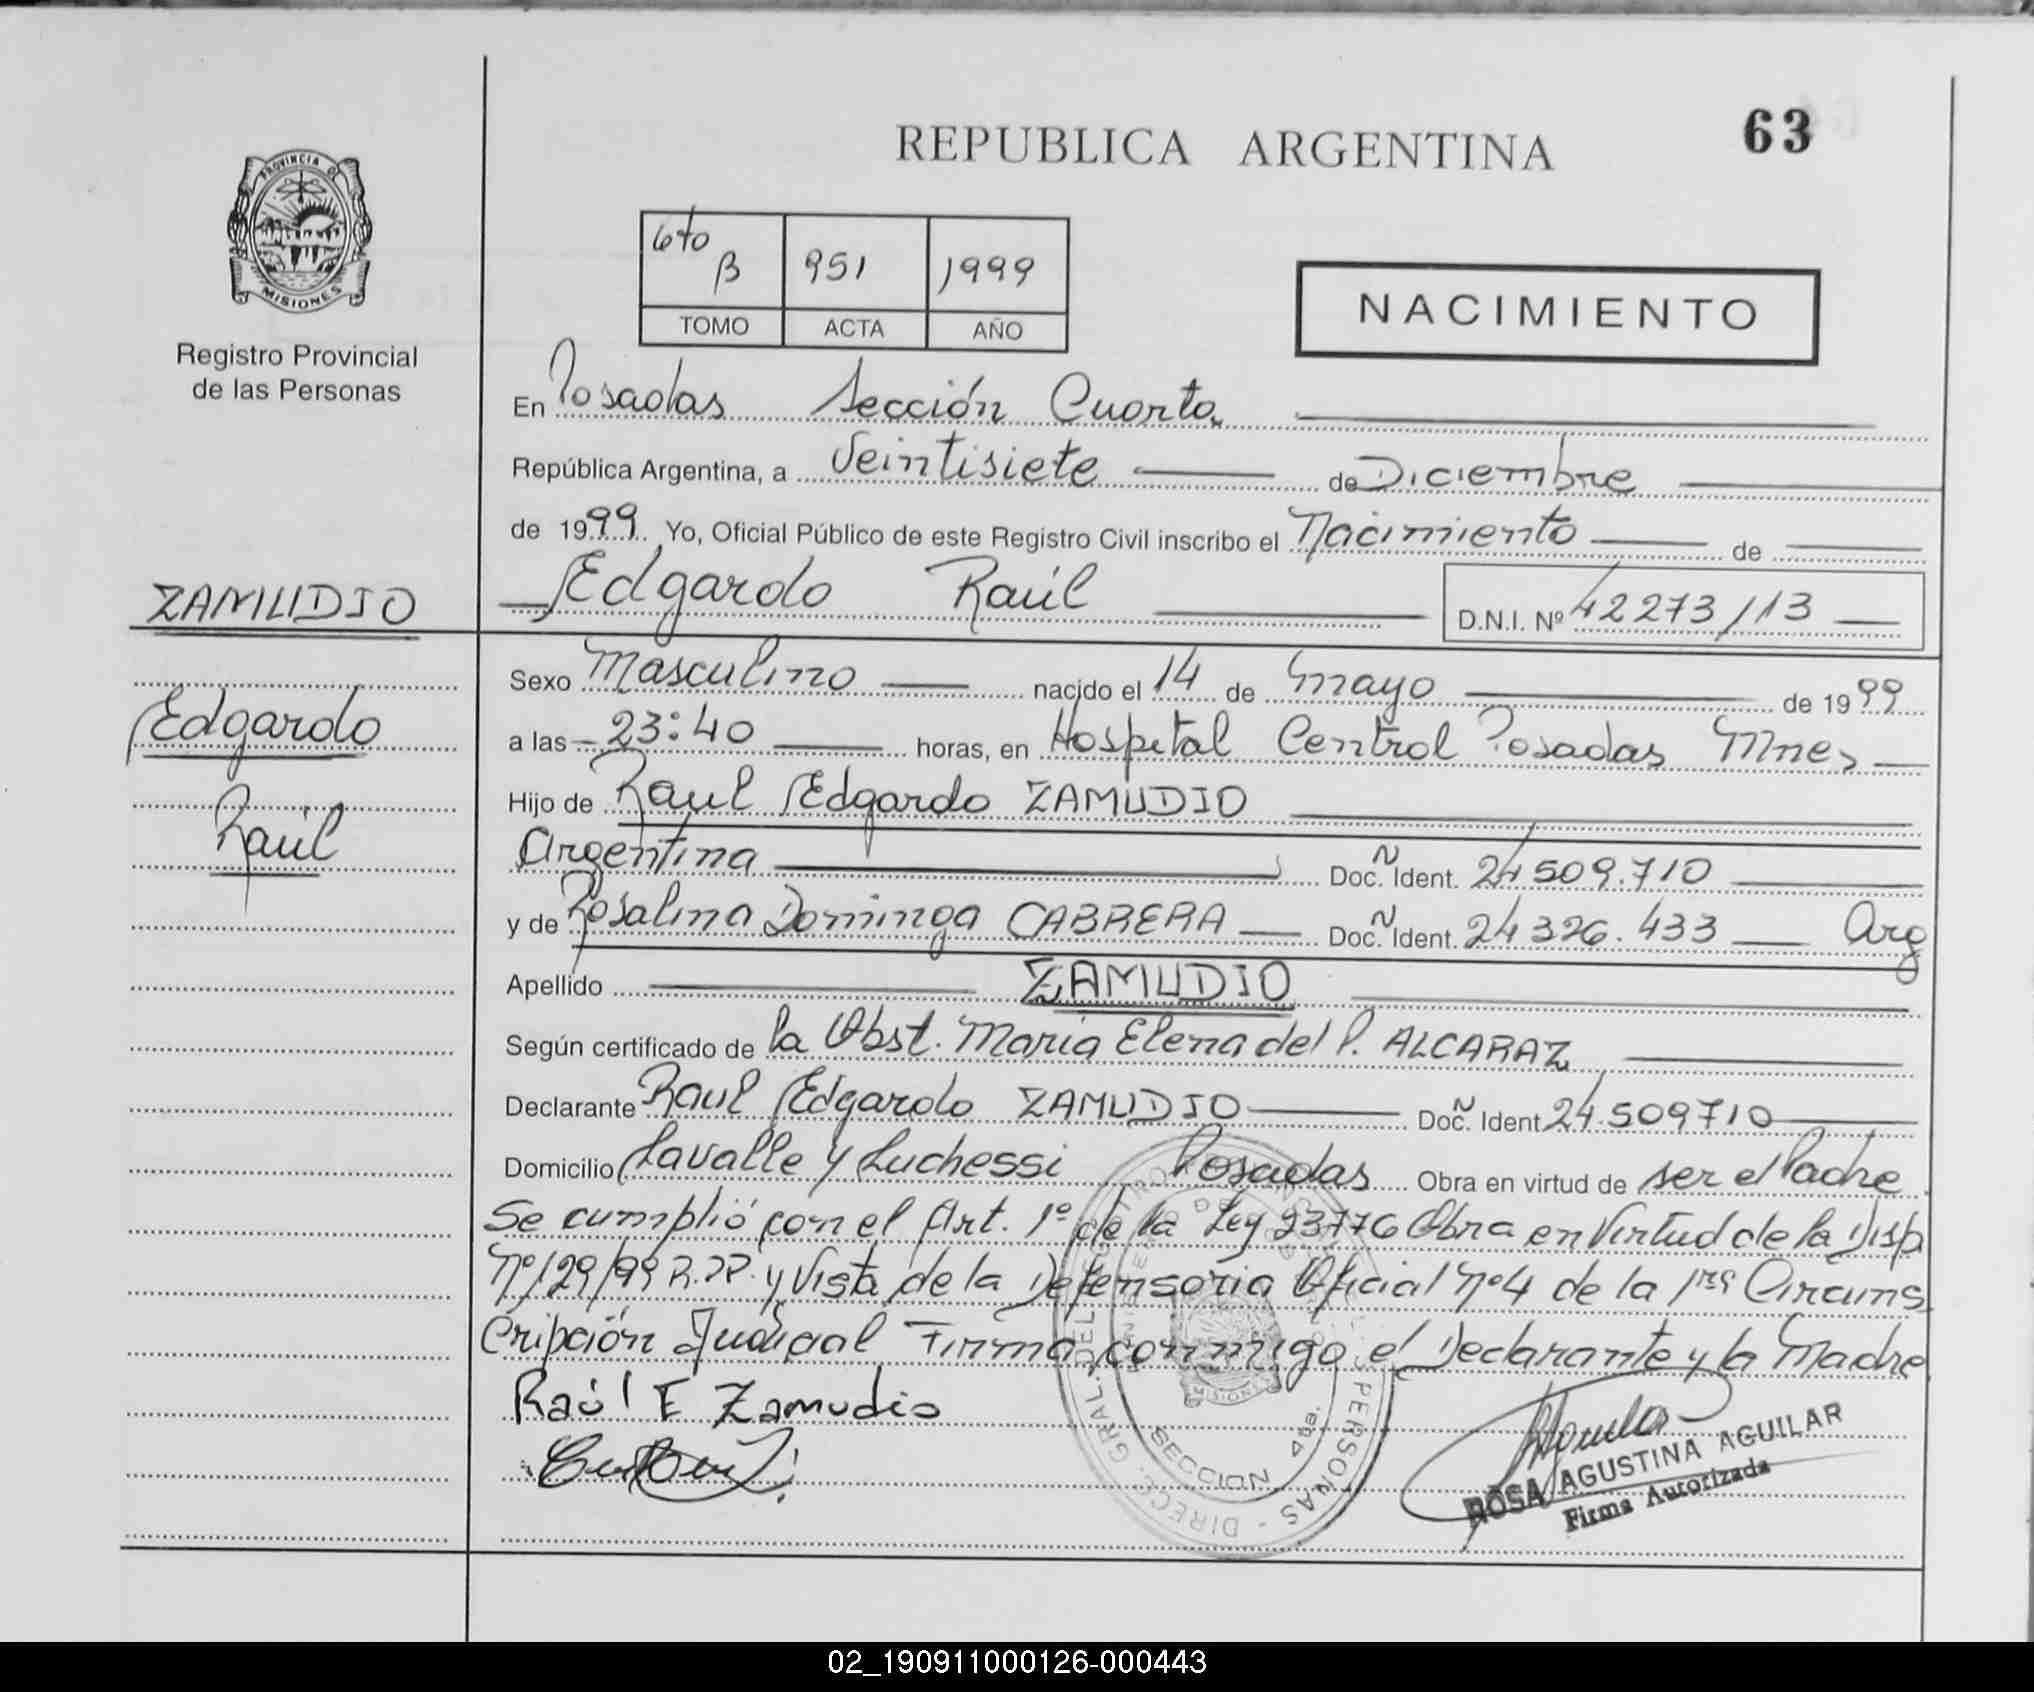 REPUBLICA ARGENTINA
63
PROVINCIA D
MISIONES
Registro Provincial
de las Personas
6to B 951 1999
TOMO ACTA AÑO
NACIMIENTO
En Posadas Sección Cuarta
República Argentina, a Veintisiete de Diciembre
de 1999. Yo, Oficial Público de este Registro Civil inscribo el Nacimiento de
ZAMUDIO
Edgardo Raúl
D.N.I. Nº 42273113
Sexo Masculino nacido el 14 de Mayo de 1999
Edgardo
a las 23:40 horas, en Hospital Central Posadas Mnes
Raúl
Hijo de Raul Edgardo ZAMUDIO
Argentina Doc. Ident. 24509.710
y de Rosalina Dominga CABRERA Doc. Ident. 24326.433 Arg
Apellido ZAMUDIO
Según certificado de la Obst. Maria Elena del P. ALCARAZ
Declarante Raul Edgardo ZAMUDIO Doc. Ident 24.509710
Domicilio Lavalle y Luchessi Posadas Obra en virtud de ser el Padre
Se cumplió con el Art. 1º de la Ley 23776 Obra en Virtud de la Disp
Nº 129/99 R.PP. y Vista de la Defensoria Oficial Nº4 de la 1ra Circuns
cripción Judicial Firma conmigo el Declarante y la Madre
Raúl E Zamudio
PERSONAS - DIREC. GRAL. DEL
MISIONES
SECCION 4ta.
ROSA AGUSTINA AGUILAR
Firma Autorizada
02_190911000126-000443